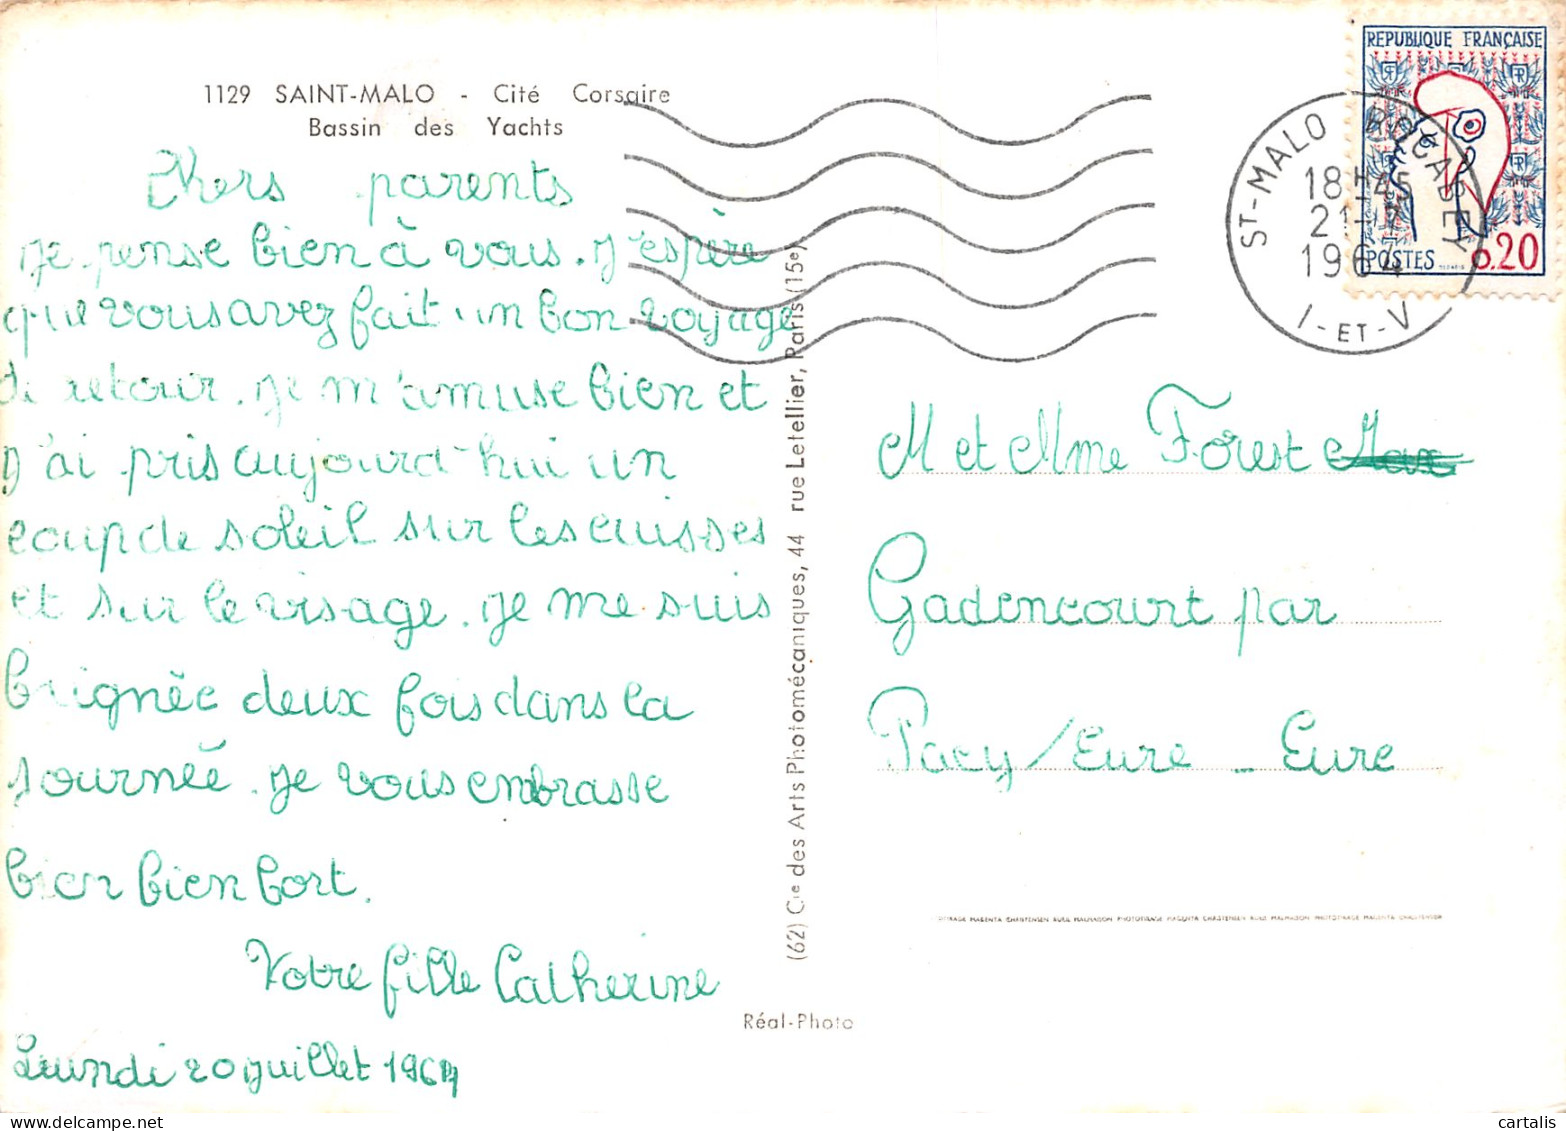 1129 SAINT-MALO - Cité Corsaire
Bassin des Yachts
Chers parents
je pense bien à vous. J'espère
que vous avez fait un bon voyage
de retour. je m'amuse bien et
j'ai pris aujourd'hui un
coup de soleil sur les cuisses
et sur le visage. je me suis
baignée deux fois dans la
journée. je vous embrasse
bien bien fort.
Votre fille Catherine
Lundi 20 juillet 1964
(62) Cie des Arts Photomécaniques, 44 rue Letellier, Paris (15e)
Réal-Photo
REPUBLIQUE FRANÇAISE
POSTES 0.20
ST-MALO ROCABEY
18H45
21-7
1964
I-ET-V
M et Mme Forest Max
Gadencourt par
Pacy/Eure - Eure
PHOTOTIRAGE MAGENTA
cartalis